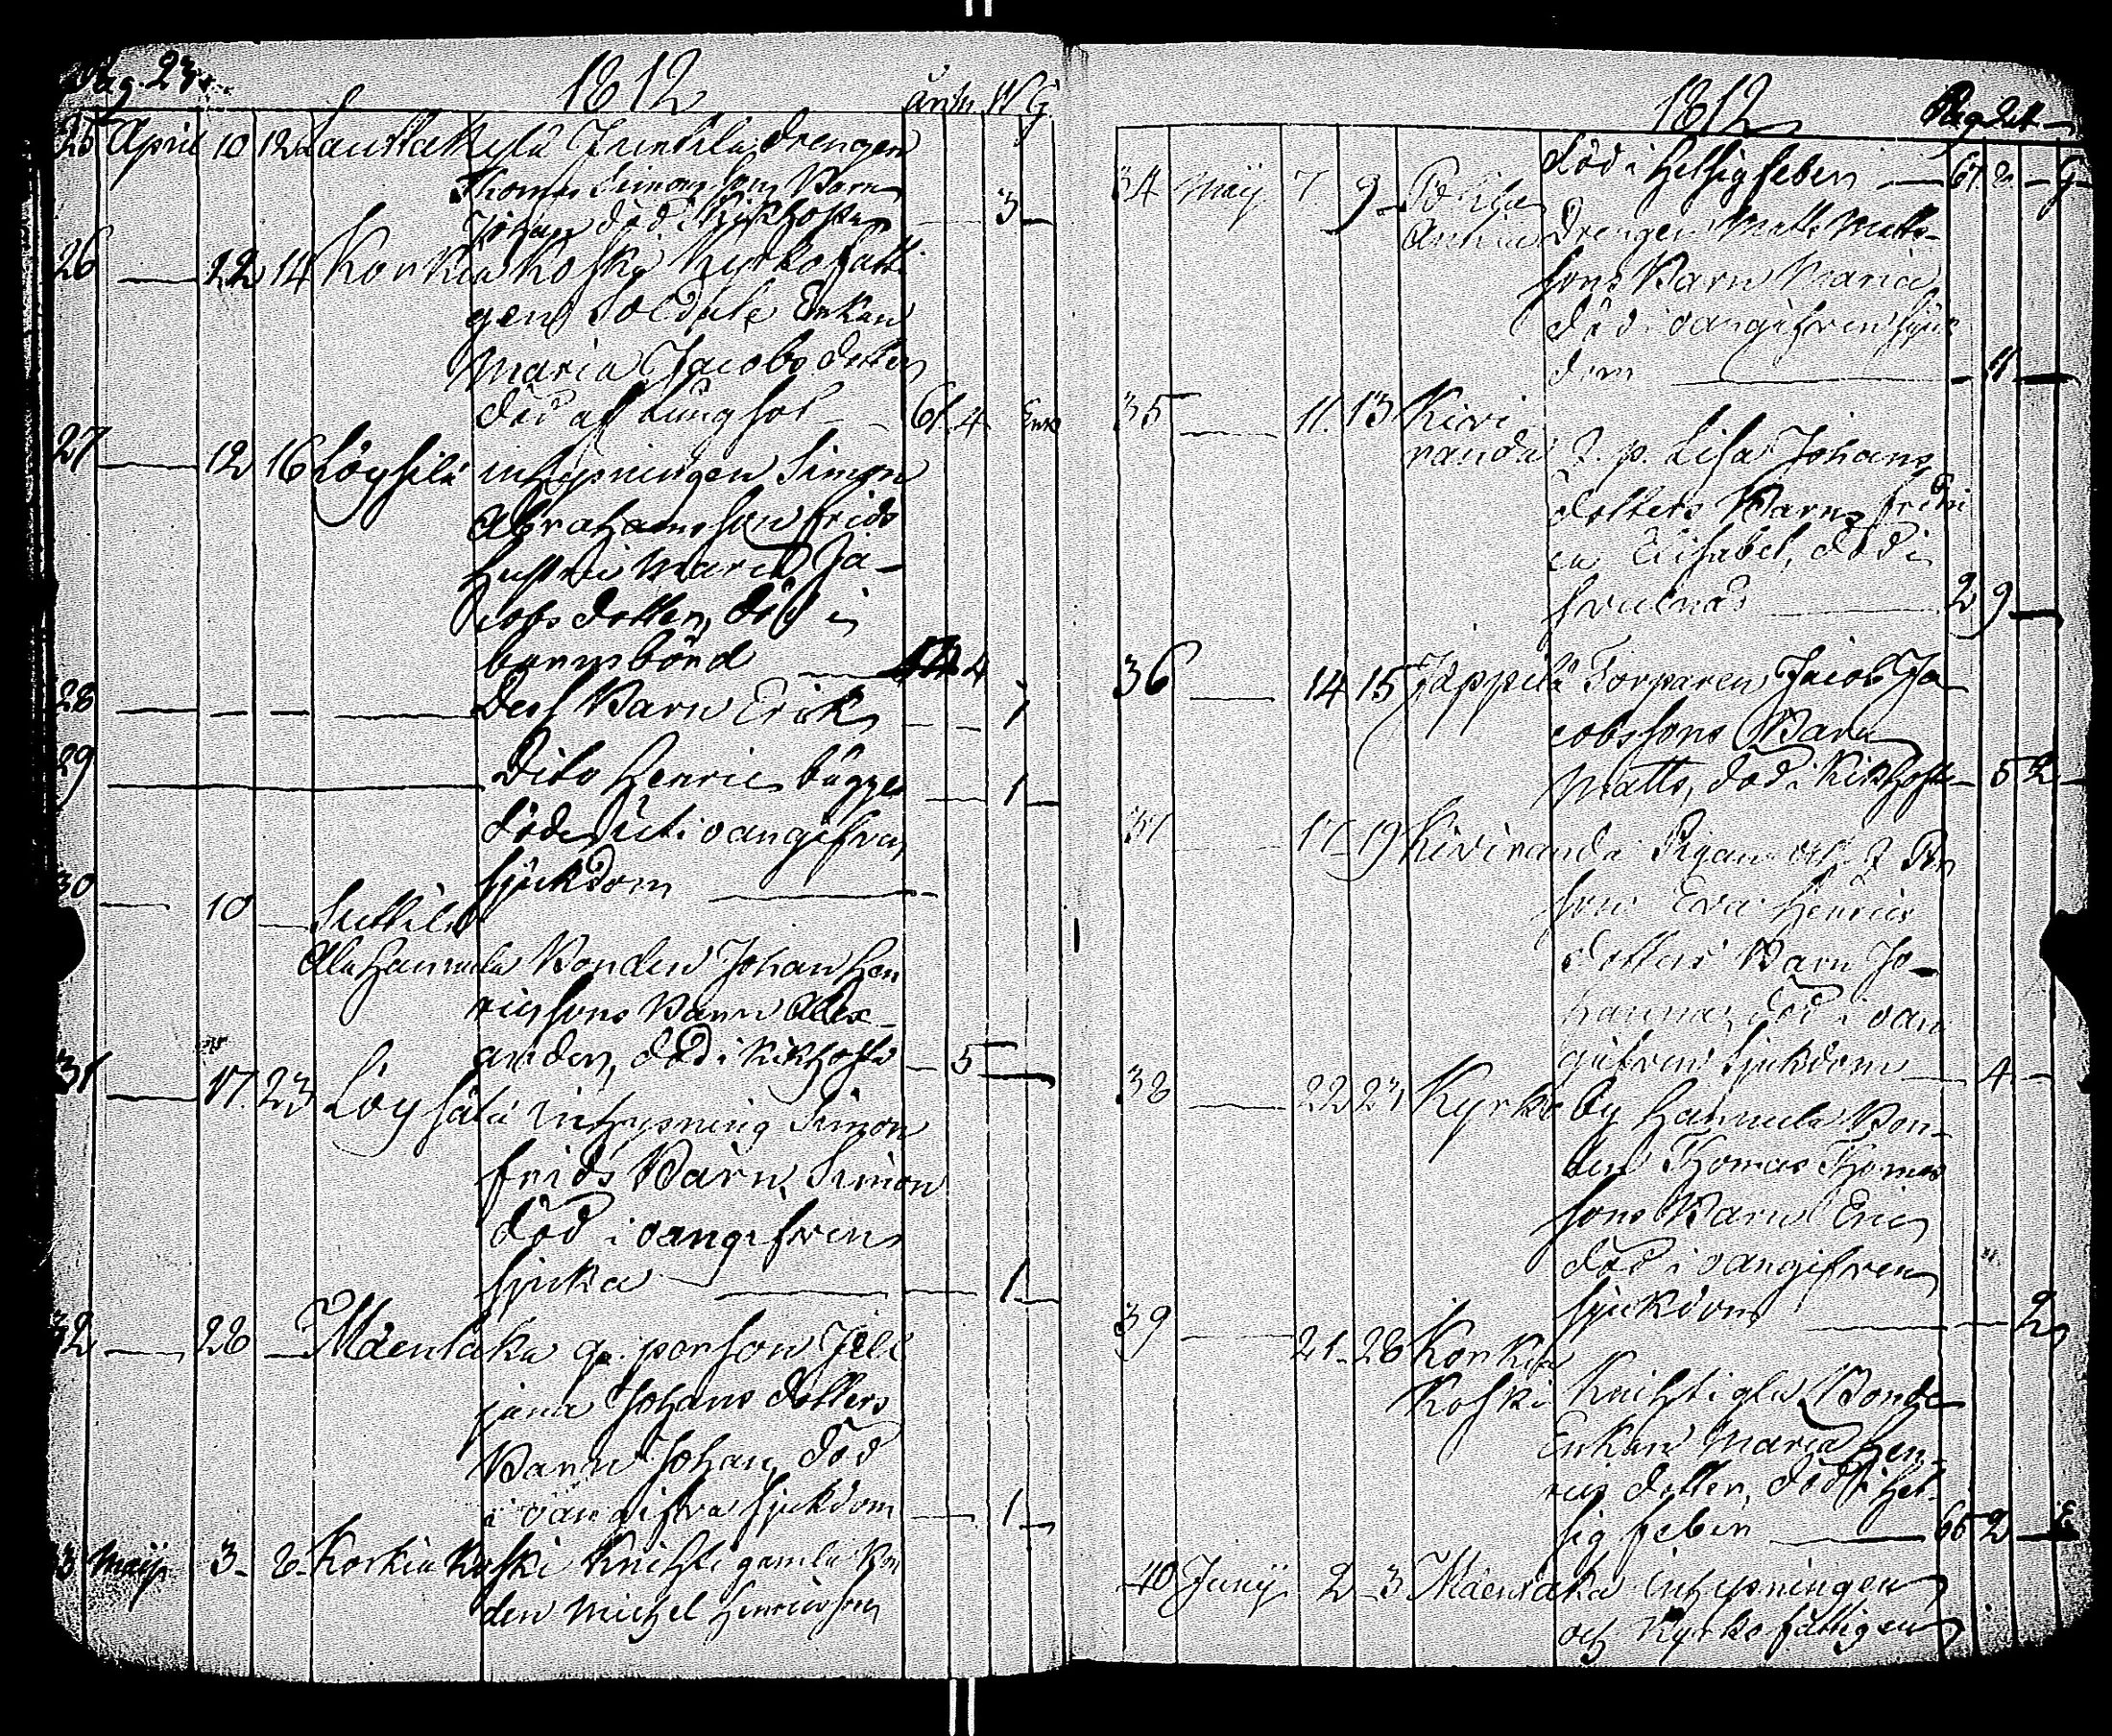 Pag. 23.
1812
år. M. W. G.
25 April 10 12 Lauttakylä Junttila drengen
Thomas Simonssons Barn
Johan död i Kikhosta 3
26 12 14 Korkiakoski Kyrkofatti
gen Soldats Enkan
Maria Jacobsdotter
död af Lungsot 61. 4 Enk
27 12 16 Löysilä inhysningen Simon
Abrahamsson Frids
hustru Maria Ja-
cobsdotter, död i
barnsbörd 4
28 Dess Barn Erik 1
29 Dito Henric bägge 1
döde uti oangifven
sjukdom
30 10 Suttila
Alahannula Bonden Johan Hen
ricssons Barn Alex-
ander, död i Kikhosta 5
31 17. 23 Löysälä Inhysning Simon
Frids Barn Simon
död i oangifven
sjuka 1
32 28 Mäentaka q. person Juli
jana Johans dotters
Barn Johan, död
i oangifva sjukdom 1
3 Maij 3 8 Korkiakoski Knihti gamla Bon
den Michel Henricsson
1812
Pag 24
död i Hetsig feber 67. 8 G
34 Maij 7 9 Pohja
Anttila Drengen Matts Matts-
sons Barn Maria
död i oangifven sjuk
dom 11
35 11. 13 Kivi
randa q. p. Lisa Johans
dotters Barn Fredri
ca Elisabet, död i
2 9
36 14 15 Jäppilä Torparen Jacob Ja
cobssons Barn
Matts, död i Kikhosta 5 2
37 17 19 Kiviranda Pigan och q Per
son Eva Henrics
dotters Barn Jo-
hanna, död i oan
gifven sjukdom 4
38 22 23 Kyrkoby Hannula Bon-
den Thomas Thomas
sons Barn Eric
död i oangifven
sjukdom 2
39 21 28 Korkia
Koski Knihti gla Bonde
Enkan Maria Hen
rics dotter, död i Het-
sig feber 66 2 E
40 Junij 2 3 Mäentaka Inhysningen
och Kyrkofattigen